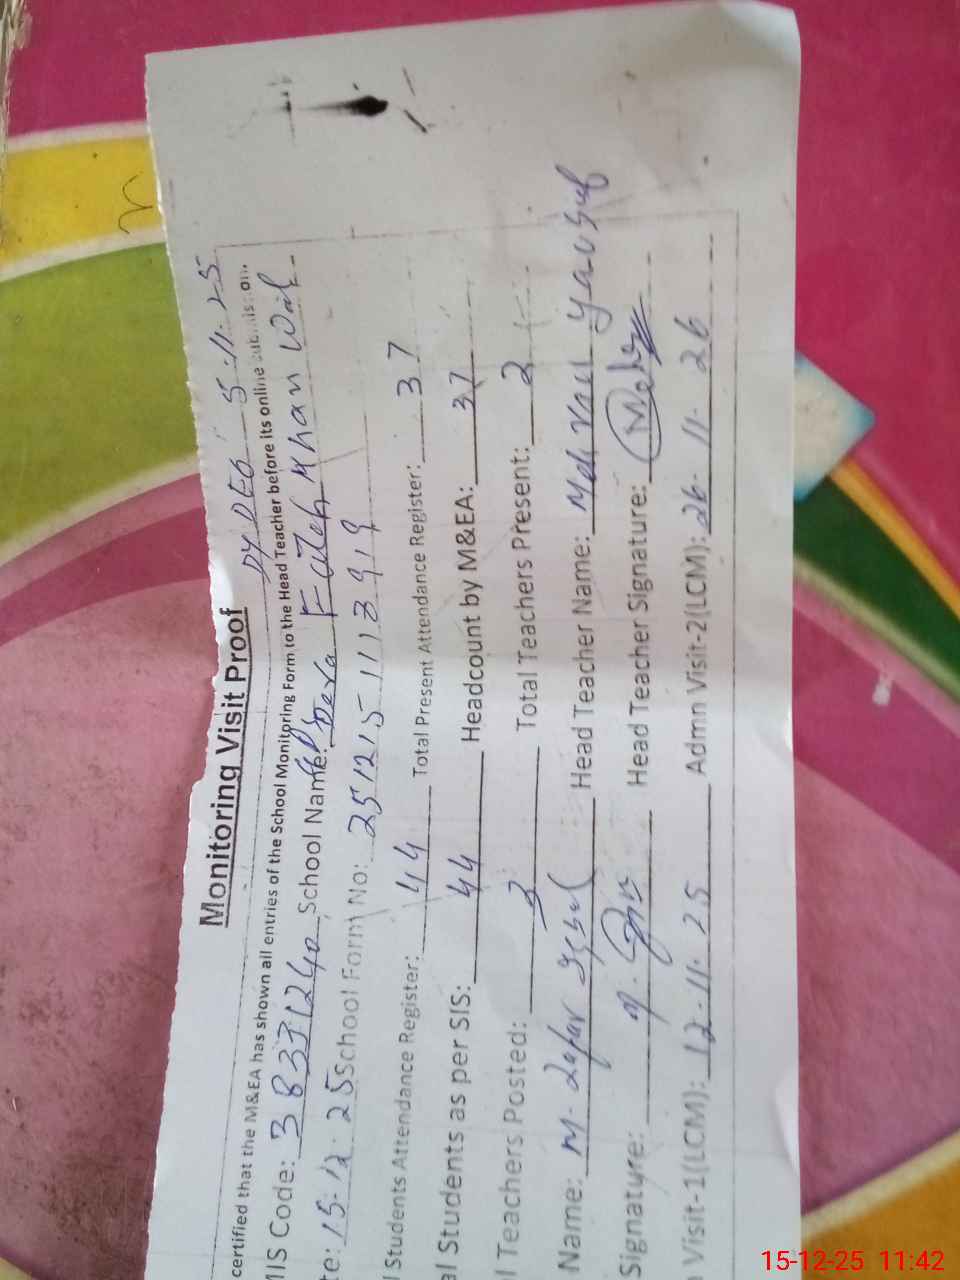 Monitoring Visit Proof
DY DEO 5-11-25
certified that the M&EA has shown all entries of the School Monitoring Form to the Head Teacher before its online submission.
MIS Code: 38331240 School Name: Dera Fateh Khan Wal
te: 15-12-25 School Form No: 25121511 919
l Students Attendance Register: 44 Total Present Attendance Register: 37
al Students as per SIS: 44 Headcount by M&EA: 37
l Teachers Posted: 3 Total Teachers Present: 2
Name: M. Zafar Iqbal Head Teacher Name: Moh Yousuf
Signature: Head Teacher Signature:
n Visit-1(LCM): 12-11-25 Admn Visit-2(LCM): 26-11-26
15-12-25 11:42